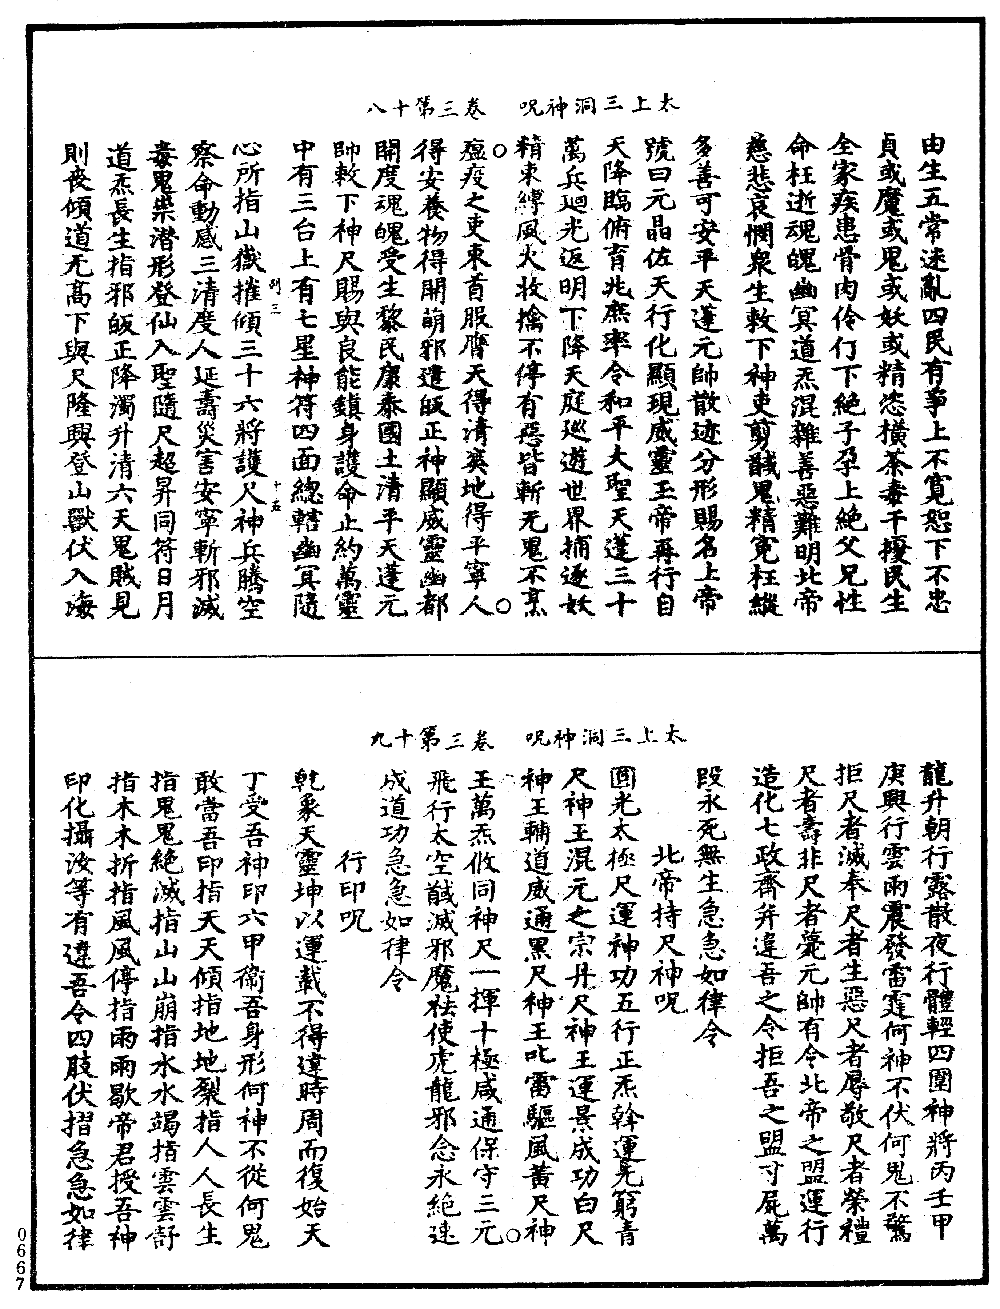 太上三洞神呪　卷三第十八
由生五常迷亂四民有爭上不寬恕下不忠
貞或魔或鬼或妖或精恣橫荼毒干擾民生
全家疾患骨肉伶仃下絕子孕上絕父兄性
命枉逝魂魄幽冥道炁混雜善惡難明北帝
慈悲哀憫衆生敕下神吏剪馘鬼精冤枉縱
多善可安平天蓬元帥散迹分形賜名上帝
號曰元晶佐天行化顯現威靈玉帝再行自
天降臨俯育兆庶率令和平大聖天蓬三十
萬兵廻光返明下降天庭廵遊世界捕逐妖
精束縛風火收擒不停有惡皆斬无鬼不烹
瘟疫之吏束首服膺天得清寞地得平寧人
得安養物得開萌邪遣皈正神顯威靈幽都
開度魂魄受生黎民康泰國土清平天蓬元
帥敕下神尺賜與良能鎮身護命止約萬靈
中有三台上有七星神符四面總轄幽冥隨
列三
十五
心所指山嶽摧傾三十六將護尺神兵騰空
察命動感三清度人延壽災害安寧斬邪滅
毒鬼祟潛形登仙入聖隨尺超昇同符日月
道炁長生指邪皈正降濁升清六天鬼賊見
則喪傾道无高下與尺隆興登山獸伏入海
太上三洞神呪　卷三第十九
龍升朝行露散夜行體輕四圍神將丙壬甲
庚興行雲雨震發雷霆何神不伏何鬼不驚
拒尺者滅奉尺者生惡尺者辱敬尺者榮禮
尺者壽非尺者薨元帥有令北帝之盟運行
造化七政齊并違吾之令拒吾之盟寸屍萬
段永死無生急急如律令
北帝持尺神呪
圓光太極尺運神功五行正炁斡運无窮青
尺神王混元之宗丹尺神王運景成功白尺
神王輔道威通黑尺神王叱雷驅風黃尺神
王萬炁攸同神尺一揮十極咸通保守三元
飛行太空馘滅邪魔祛使虎龍邪念永絕速
成道功急急如律令
行印呪
乾象天靈坤以運載不得違時周而復始天
丁受吾神印六甲衞吾身形何神不從何鬼
敢當吾印指天天傾指地地裂指人人長生
指鬼鬼絕滅指山山崩指水水竭指雲雲舒
指木木折指風風停指雨雨歇帝君授吾神
印化攝汝等有違吾令四肢伏摺急急如律
0667